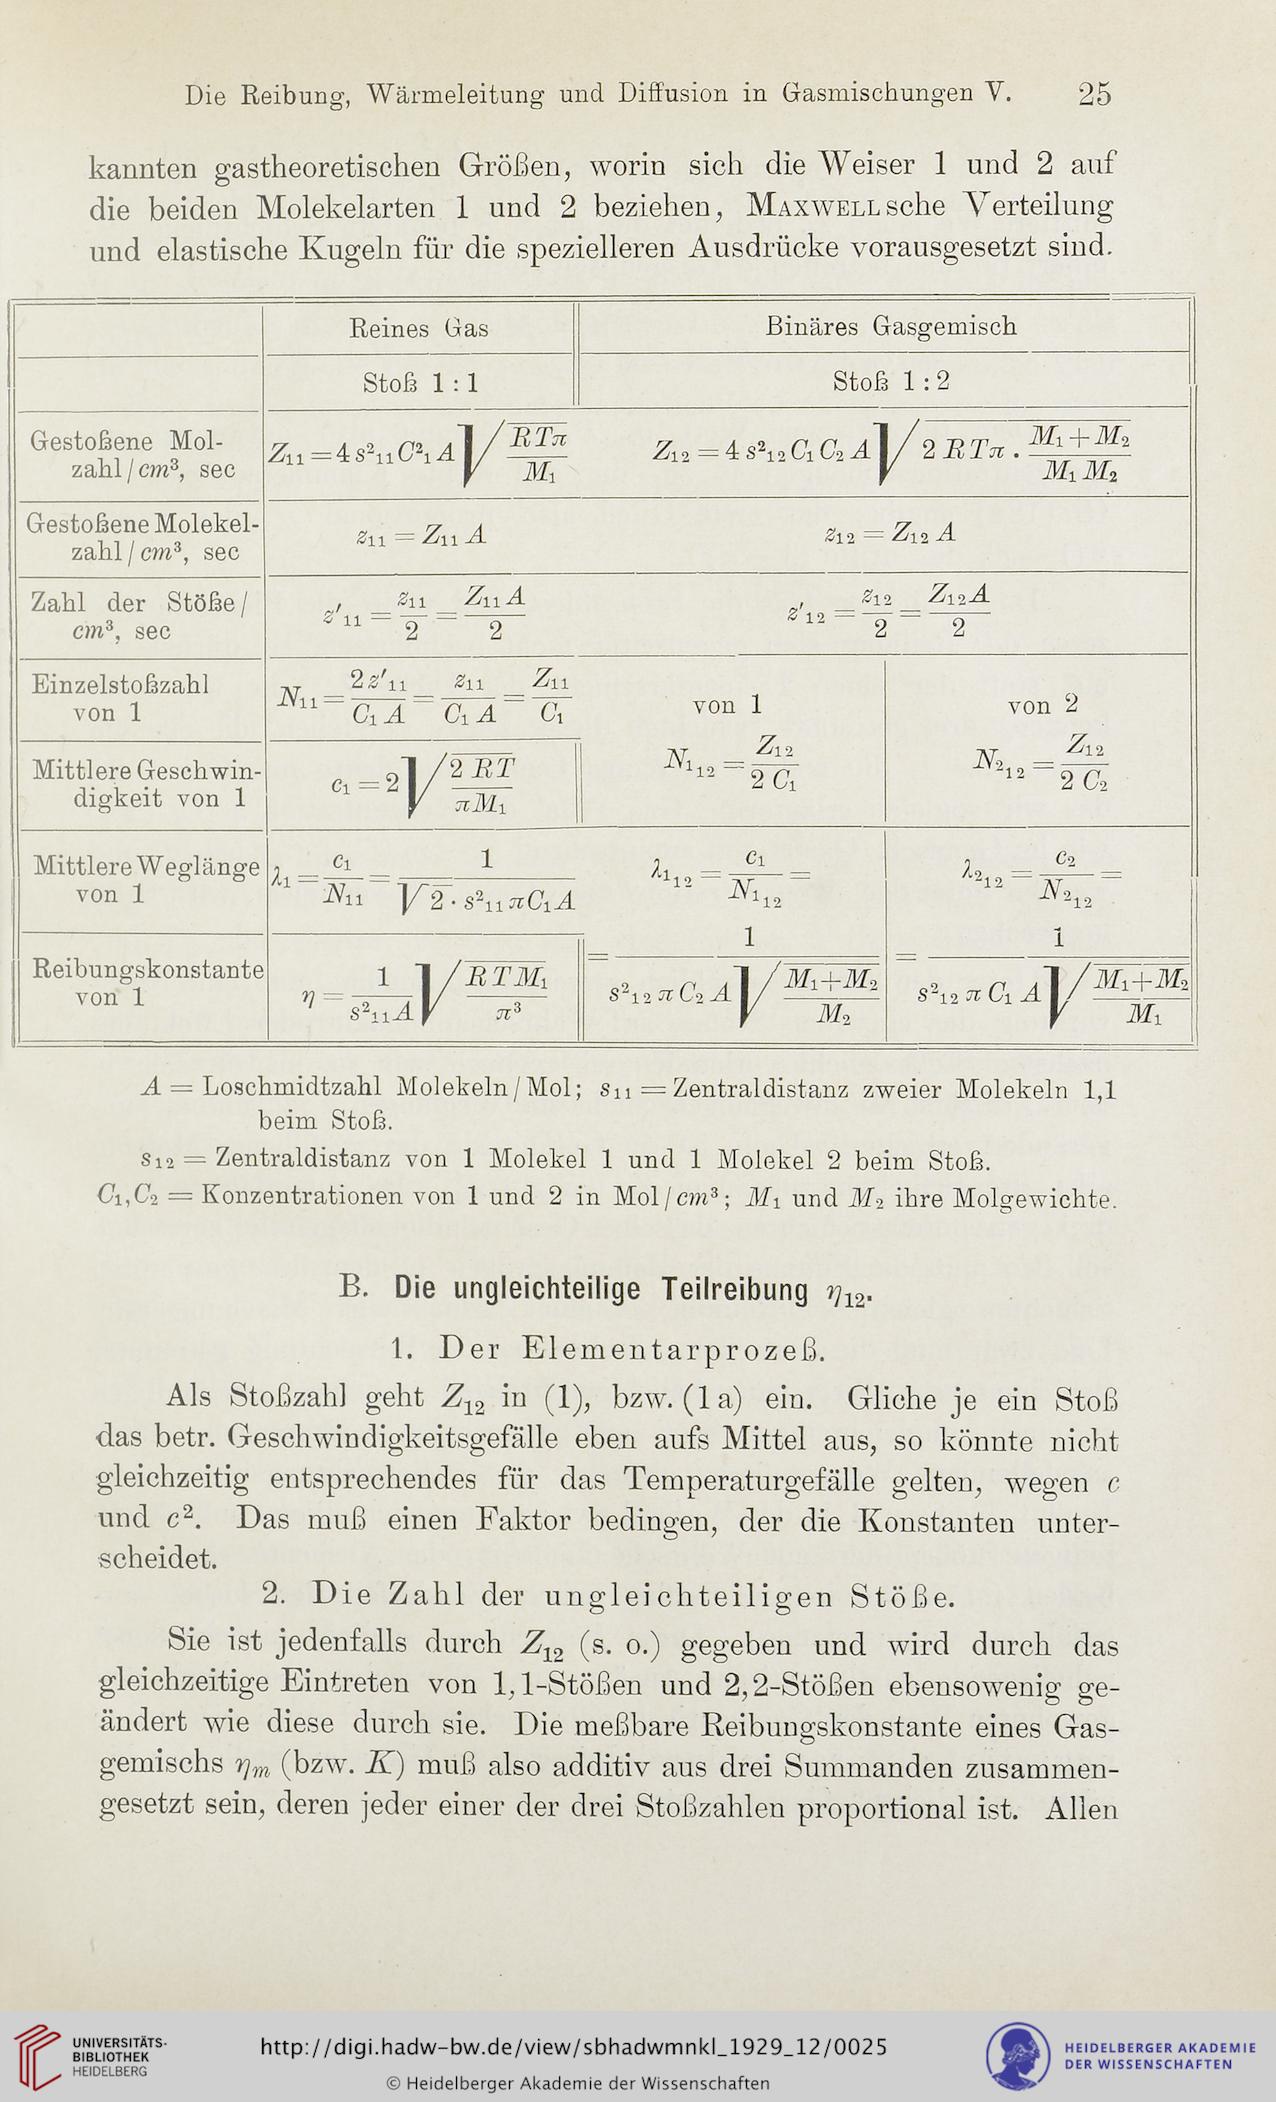 Die Reibung, Wärmeleitung und Diffusion in Gasmischungen V. 25
kannten gastheoretischen Größen, worin sich die Weiser 1 und 2 auf
die beiden Molekelarten 1 und 2 beziehen, MAXWELLsche Verteilung
und elastische Kugeln für die spezielleren Ausdrücke vorausgesetzt sind.
Reines Gas Binäres Gasgemisch
Stoß 1 : 1 Stoß 1 : 2
Gestoßene Mol-
zahl / cm³, sec
Z₁₁ = 4 s²₁₁ C²₁ A √(RTπ / M₁)
Z₁₂ = 4 s²₁₂ C₁ C₂ A √(2 RTπ . (M₁ + M₂) / (M₁ M₂))
Gestoßene Molekel-
zahl / cm³, sec
z₁₁ = Z₁₁ A
z₁₂ = Z₁₂ A
Zahl der Stöße /
cm³, sec
z′₁₁ = z₁₁ / 2 = Z₁₁ A / 2
z′₁₂ = z₁₂ / 2 = Z₁₂ A / 2
Einzelstoßzahl
von 1
N₁₁ = 2 z′₁₁ / (C₁ A) = z₁₁ / (C₁ A) = Z₁₁ / C₁
von 1
N₁₁₂ = Z₁₂ / (2 C₁)
von 2
N₂₁₂ = Z₁₂ / (2 C₂)
Mittlere Geschwin-
digkeit von 1
c₁ = 2 √(2 RT / (π M₁))
Mittlere Weglänge
von 1
λ₁ = c₁ / N₁₁ = 1 / (√2 · s²₁₁ π C₁ A)
λ₁₁₂ = c₁ / N₁₁₂ =
= 1 / (s²₁₂ π C₂ A √((M₁ + M₂) / M₂))
λ₂₁₂ = c₂ / N₂₁₂ =
= 1 / (s²₁₂ π C₁ A √((M₁ + M₂) / M₁))
Reibungskonstante
von 1
η = 1 / (s²₁₁ A) √(RTM₁ / π³)
A = Loschmidtzahl Molekeln / Mol; s₁₁ = Zentraldistanz zweier Molekeln 1,1
beim Stoß.
s₁₂ = Zentraldistanz von 1 Molekel 1 und 1 Molekel 2 beim Stoß.
C₁, C₂ = Konzentrationen von 1 und 2 in Mol / cm³; M₁ und M₂ ihre Molgewichte.
B. Die ungleichteilige Teilreibung η₁₂.
1. Der Elementarprozeß.
Als Stoßzahl geht Z₁₂ in (1), bzw. (1 a) ein. Gliche je ein Stoß
das betr. Geschwindigkeitsgefälle eben aufs Mittel aus, so könnte nicht
gleichzeitig entsprechendes für das Temperaturgefälle gelten, wegen c
und c². Das muß einen Faktor bedingen, der die Konstanten unter-
scheidet.
2. Die Zahl der ungleichteiligen Stöße.
Sie ist jedenfalls durch Z₁₂ (s. o.) gegeben und wird durch das
gleichzeitige Eintreten von 1,1-Stößen und 2,2-Stößen ebensowenig ge-
ändert wie diese durch sie. Die meßbare Reibungskonstante eines Gas-
gemischs ηm (bzw. K) muß also additiv aus drei Summanden zusammen-
gesetzt sein, deren jeder einer der drei Stoßzahlen proportional ist. Allen
UNIVERSITÄTS-
BIBLIOTHEK
HEIDELBERG
http://digi.hadw-bw.de/view/sbhadwmnkl_1929_12/0025
© Heidelberger Akademie der Wissenschaften
HEIDELBERGER AKADEMIE
DER WISSENSCHAFTEN